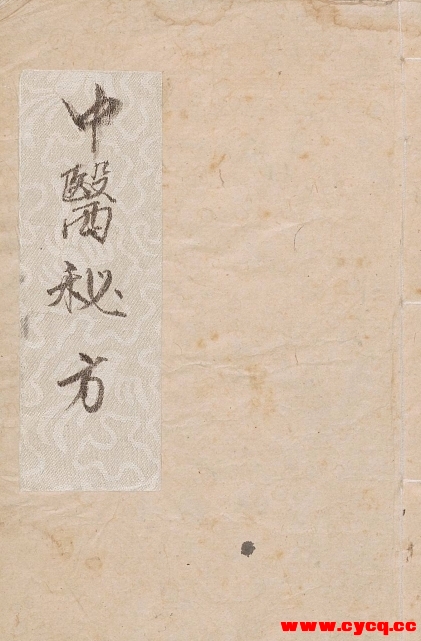 中醫秘方
www.cycq.cc